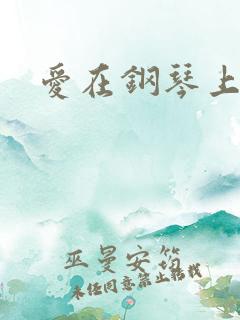 愛在鋼琴上
巫曼安筠
未經同意禁止轉載